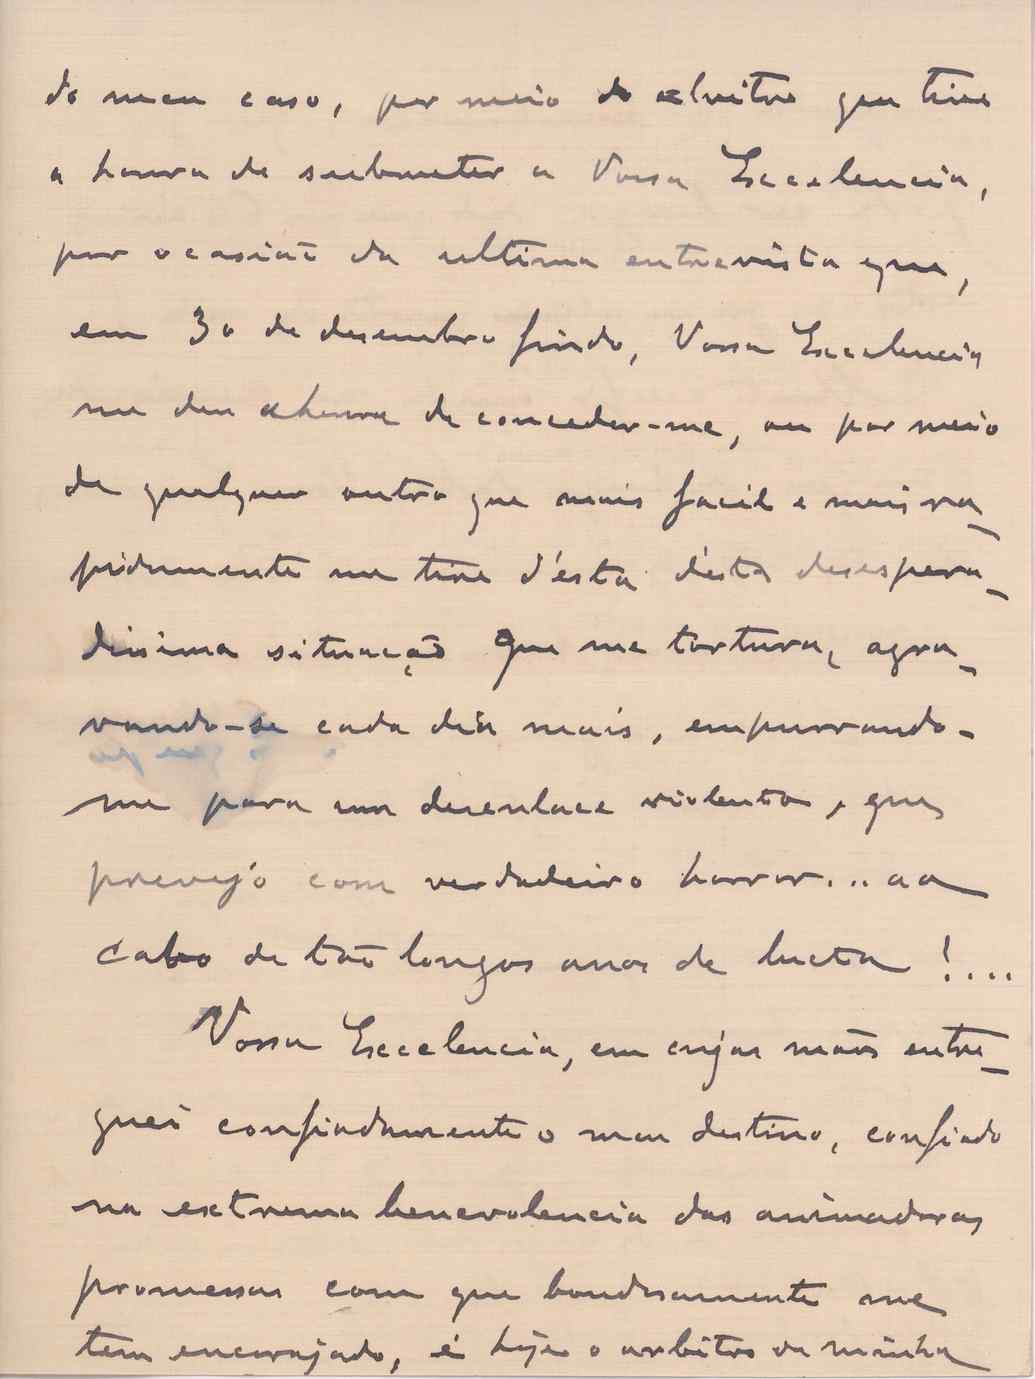 do meu caso, por meio do alvitre que tive
a honra de submeter a Vossa Excelencia,
por ocasião da ultima entrevista que,
em 30 de desembro findo, Vossa Excelencia
me deu a honra de conceder-me, ou por meio
de qualquer outro que mais facil e mais ra-
pidamente me tire d'ésta d'ésta desespera-
dissima situação que me tortura, agra-
vando-se cada dia mais, empurrando-
me para um desenlace violento, que
prevejo com verdadeiro horror... ao
cabo de tão longos anos de lucta!....
Vossa Excelencia, em cujas mãos entre-
guei confiadamente o meu destino, confiado
na extrema benevolencia das animadoras
promessas com que bondosamente me
tem encorajado, é hoje o arbitro da minha